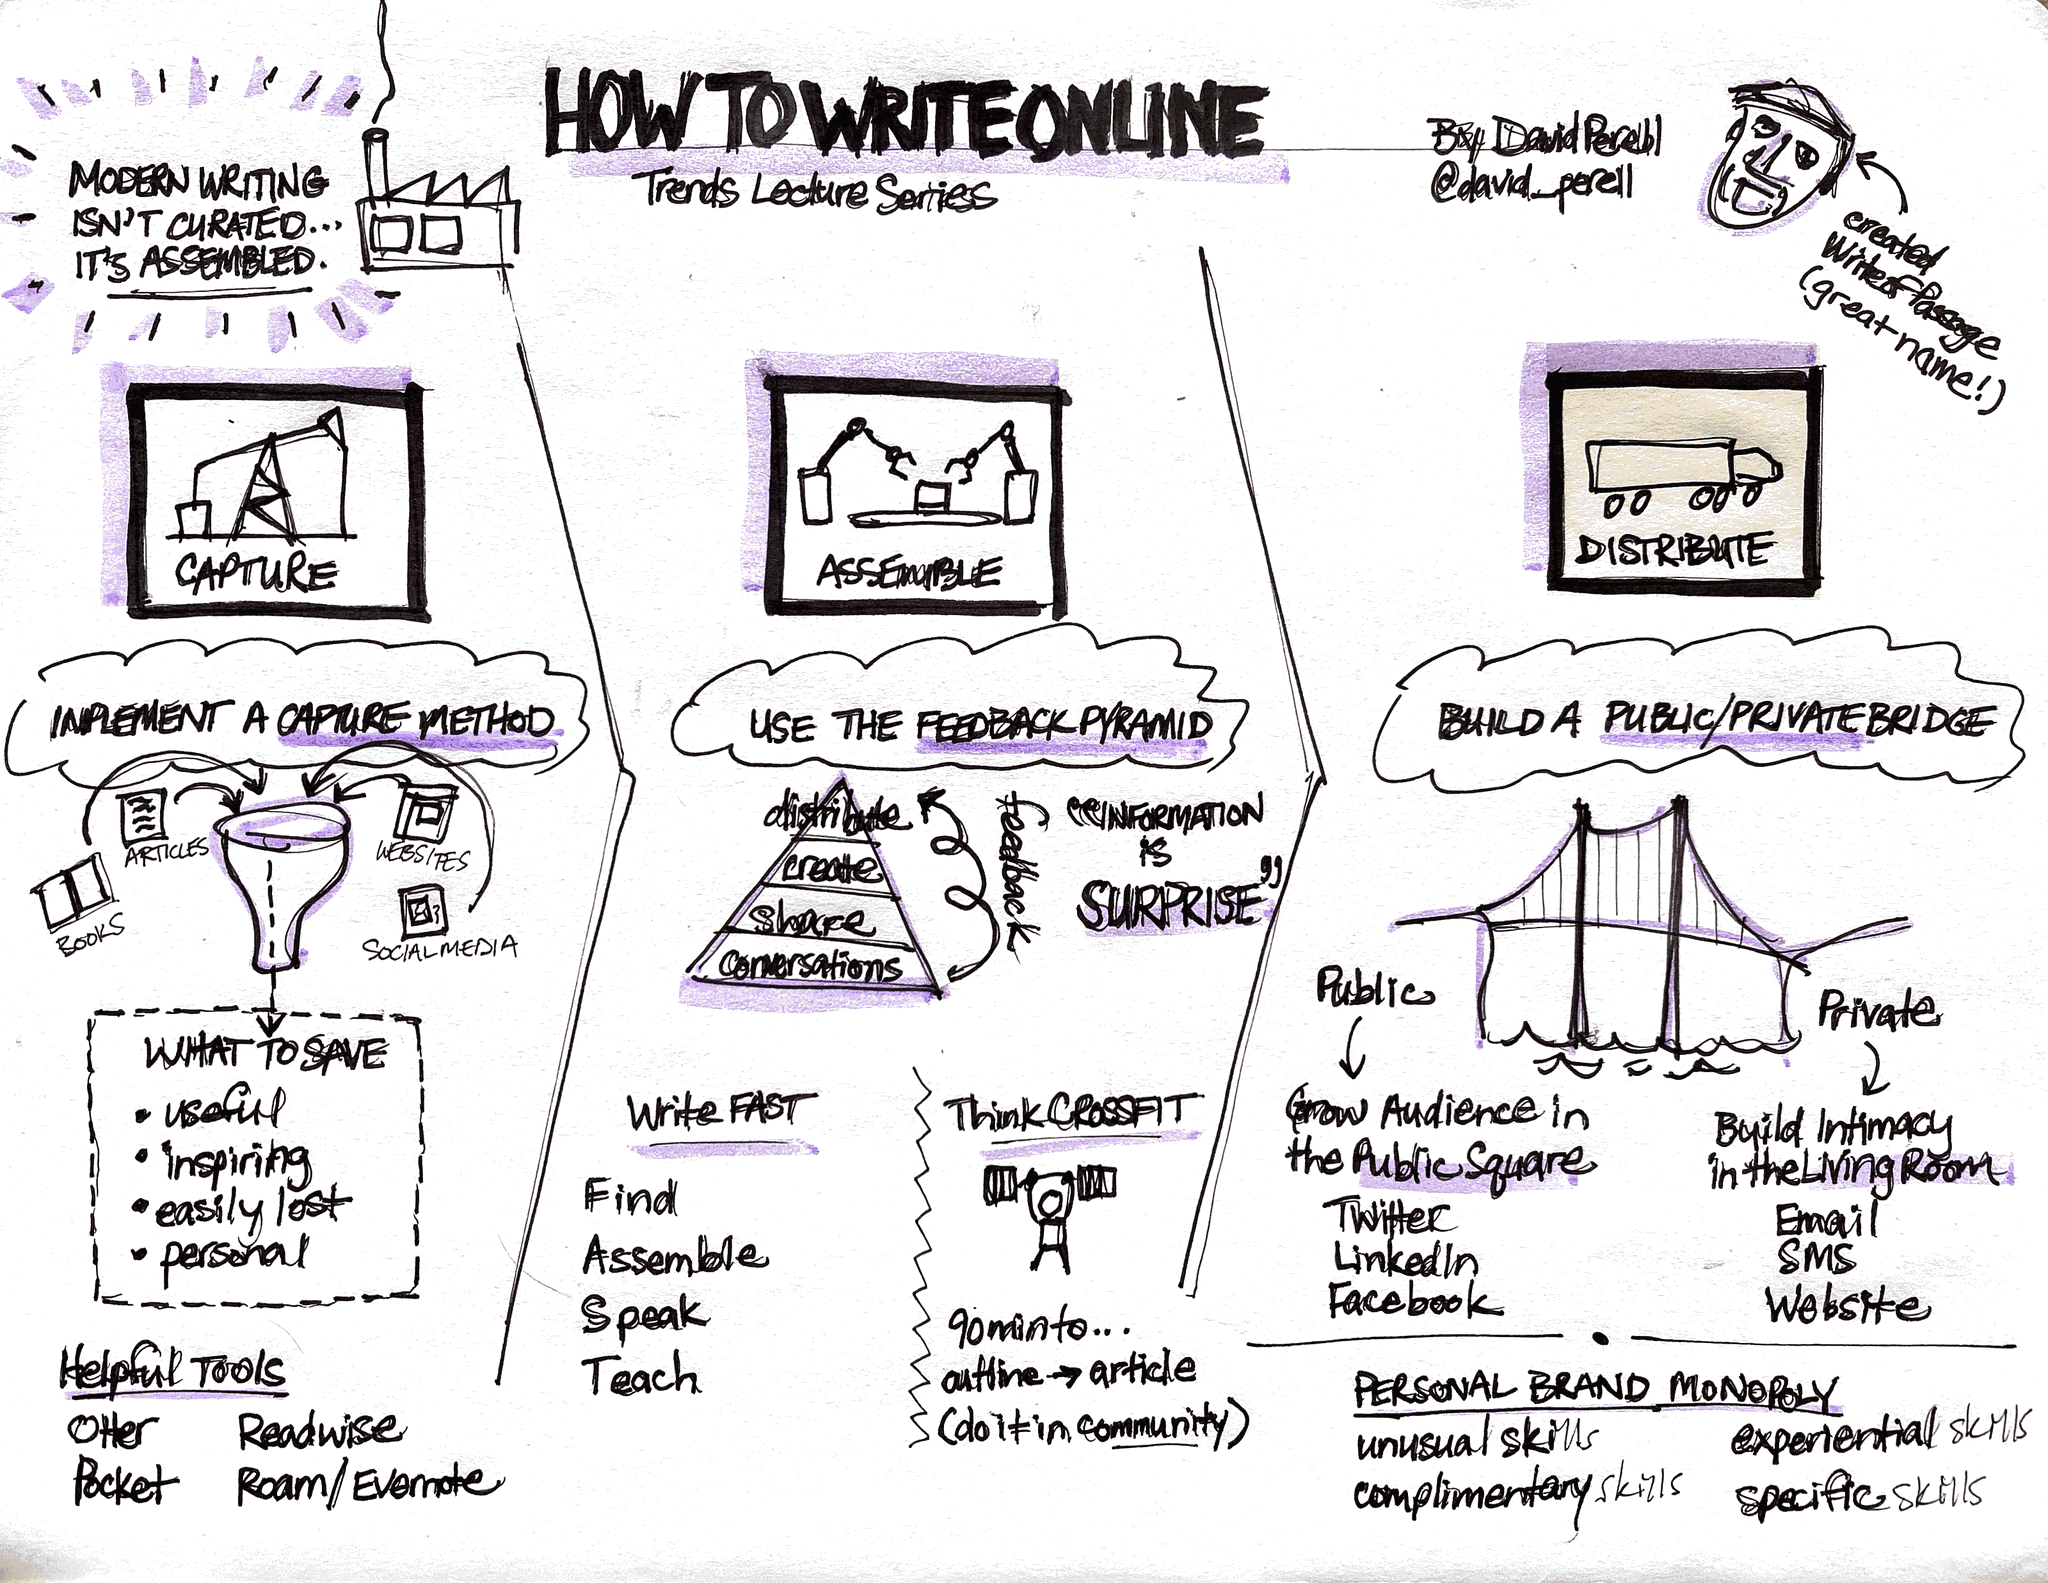 HOW TO WRITE ONLINE
Trends Lecture Series
By David Perell
@david_perell
created
Write of Passage
(great name!)
MODERN WRITING
ISN'T CURATED...
IT'S ASSEMBLED.
CAPTURE
IMPLEMENT A CAPTURE METHOD
ARTICLES
WEBSITES
BOOKS
SOCIAL MEDIA
WHAT TO SAVE
• useful
• inspiring
• easily lost
• personal
Helpful TOOLS
Otter Readwise
Pocket Roam/Evernote
ASSEMBLE
USE THE FEEDBACK PYRAMID
distribute
create
share
conversations
feedback
"INFORMATION
is
SURPRISE"
Write FAST
Find
Assemble
Speak
Teach
Think CROSSFIT
90 min to...
outline → article
(do it in community)
DISTRIBUTE
BUILD A PUBLIC/PRIVATE BRIDGE
Public
Grow Audience in
the Public Square
Twitter
LinkedIn
Facebook
Private
Build Intimacy
in the Living Room
Email
SMS
Website
PERSONAL BRAND MONOPOLY
unusual skills experiential skills
complimentary skills specific skills